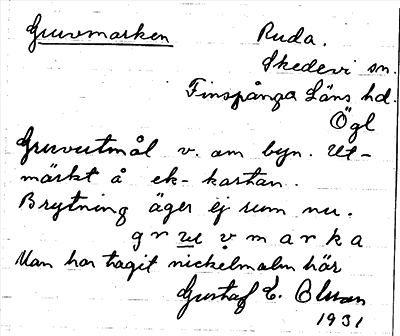 Gruvmarken Ruda.
Skedevi sn.
Finspånga Läns hd.
Ögl
Gruvutmål v. om byn. Ut-
märkt å ek-kartan.
Brytning äger ej rum nu.
g r u v m a r k a
Man har tagit nickelmalm här
Gustaf E. Olsson
1931